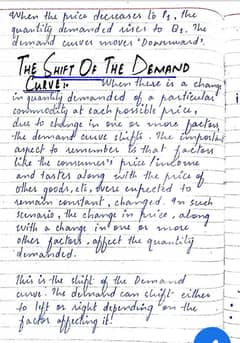 When the price decreases to P2, the
quantity demanded rises to Q2. The
demand curve moves 'Downward'.
THE SHIFT OF THE DEMAND
CURVE:- When there is a change
in quantity demanded of a particular
commodity at each possible price,
due to change in one or more factors
the demand curve shifts. The important
aspect to remember is that factors
like the consumer's price/income
and tastes along with the price of
other goods, etc, were expected to
remain constant, changed. In such
scenario, the change in price, along
with a change in one or more
other factors, affect the quantity
demanded.
This is the shift of the Demand
curve. The demand can shift either
to left or right depending on the
factor affecting it.